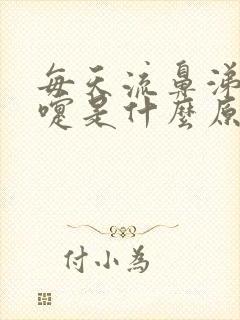 每天流鼻涕
嚏是什麼原
付小為